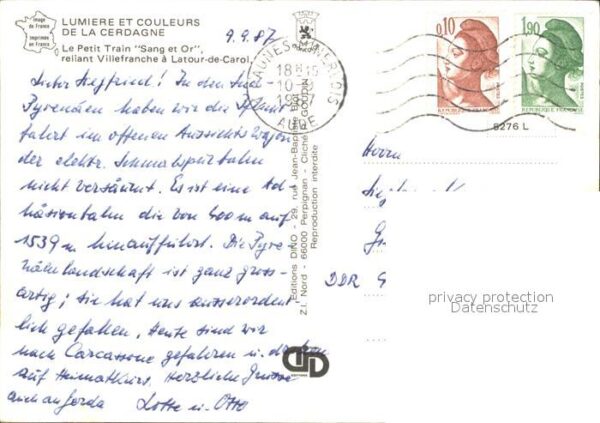 image
de France
imprimée
en France
LUMIERE ET COULEURS
DE LA CERDAGNE
Le Petit Train "Sang et Or",
reliant Villefranche à Latour-de-Carol.
9.9.87
Lieber Siegfried! In den
Pyrenäen haben wir die
fahrt im offenen Aussichtswagen
der elektr. Schmalspurbahn
nicht versäumt. Es ist eine Ad
häsionsbahn die von 600 m auf
1539 m hinaufführt. Die Pyre-
näenlandschaft ist ganz gross-
artig; sie hat uns ausserordent
lich gefallen. Heute sind wir
nach Carcassone gefahren u.
auf Heimatkurs. Herzliche Grüsse
auch an Gerda Lotte u. Otto
Editions DINO - 29, rue Jean-Baptiste
Z.I. Nord - 66000 Perpignan - Cliché GOUDIN
Reproduction interdite
18H
10-9
AUDE
0,10
REPUBLIQUE FRANÇAISE
1,90
REPUBLIQUE FRANÇAISE
9276 L
Herrn
DDR
privacy protection
Datenschutz